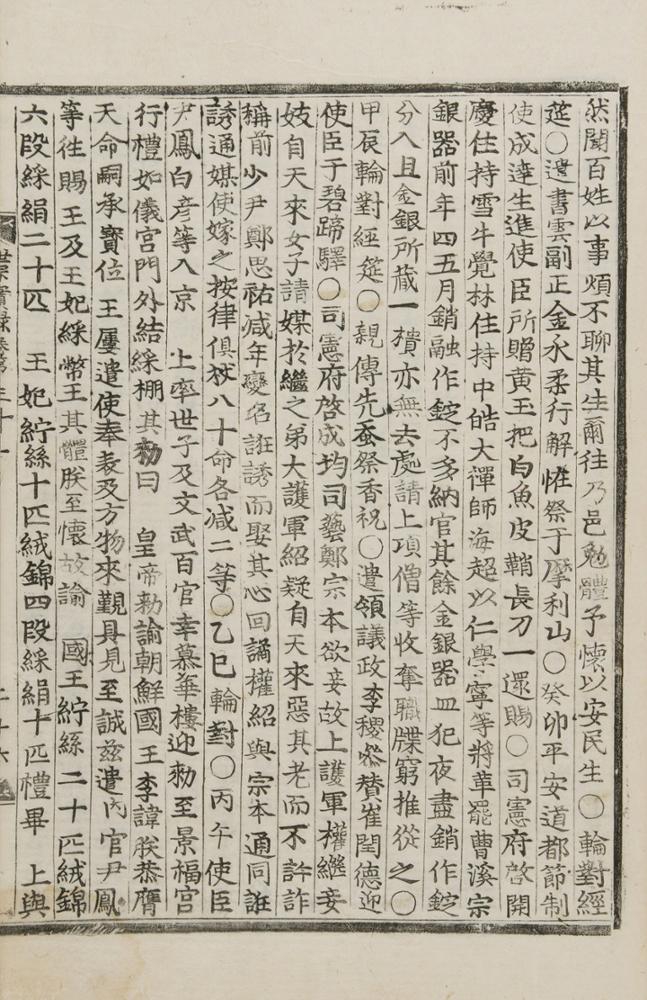 然聞百姓以事煩不聊其生爾往乃邑勉體予懷以安民生○輪對經
筵○遣書雲副正金永柔行解怪祭于摩利山○癸卯平安道都節制
使成達生進使臣所贈黃玉把白魚皮鞘長刀一還賜○司憲府啓開
慶住持雪牛覺林住持中皓大禪師海超以仁學寧等將革罷曹溪宗
銀器前年四五月銷融作錠不多納官其餘金銀器皿犯夜盡銷作錠
分入且金銀所藏一樻亦無去處請上項僧等收奪職牒窮推從之○
甲辰輪對經筵○親傳先蚕祭香祝○遣領議政李稷叅賛崔閏德迎
使臣于碧蹄驛○司憲府啓成均司藝鄭宗本欲妾故上護軍權繼妾
妓自天來女子請媒於繼之弟大護軍紹疑自天來惡其老而不許詐
稱前少尹鄭思祐减年變名誑誘而娶其心回譎權紹與宗本通同誑
誘通媒使嫁之按律俱杖八十命各减二等○乙巳輪對○丙午使臣
尹鳳白彦等入京 上率世子及文武百官幸慕華樓迎勑至景福宮
行禮如儀宮門外結綵棚其勑曰 皇帝勑諭朝鮮國王李諱朕恭膺
天命嗣承寳位 王屢遣使奉表及方物來覲具見至誠茲遣內官尹鳳
等徃賜王及王妃綵幣王其體朕至懷故諭 國王紵絲二十匹絨錦
六段綵絹二十匹 王妃紵絲十匹絨錦四段綵絹十匹禮畢 上與
世宗實錄卷第三十一 二十六